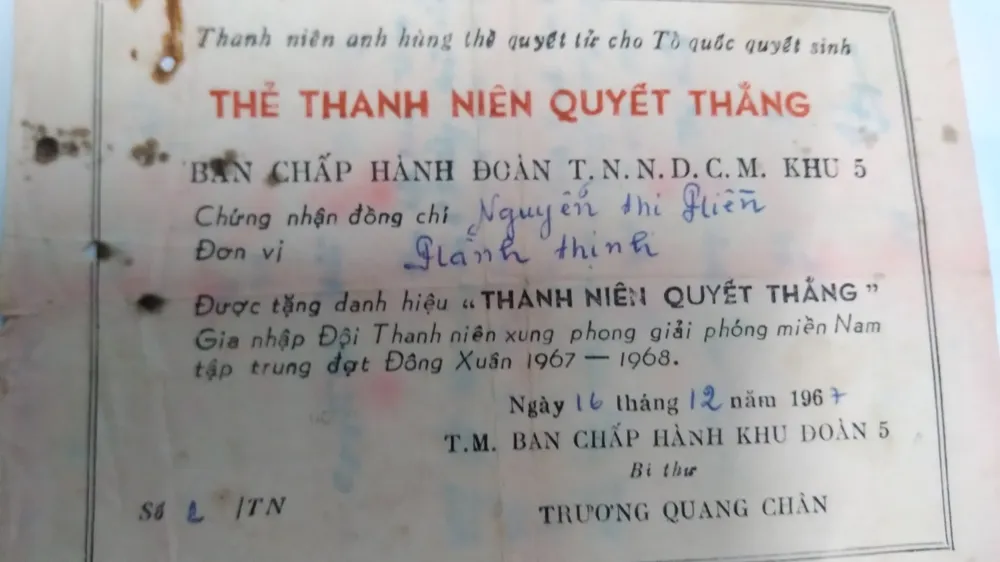 Thanh niên anh hùng thề quyết tử cho Tổ quốc quyết sinh
THẺ THANH NIÊN QUYẾT THẮNG
BAN CHẤP HÀNH ĐOÀN T.N.N.D.C.M. KHU 5
Chứng nhận đồng chí Nguyễn thị
Đơn vị thịnh
Được tặng danh hiệu “THANH NIÊN QUYẾT THẮNG”
Gia nhập Đội Thanh niên xung phong giải phóng miền Nam
tập trung đợt Đông Xuân 1967 — 1968.
Ngày 16 tháng 12 năm 1967
T.M. BAN CHẤP HÀNH KHU ĐOÀN 5
Bí thư
Số /TN
TRƯƠNG QUANG CHÂN